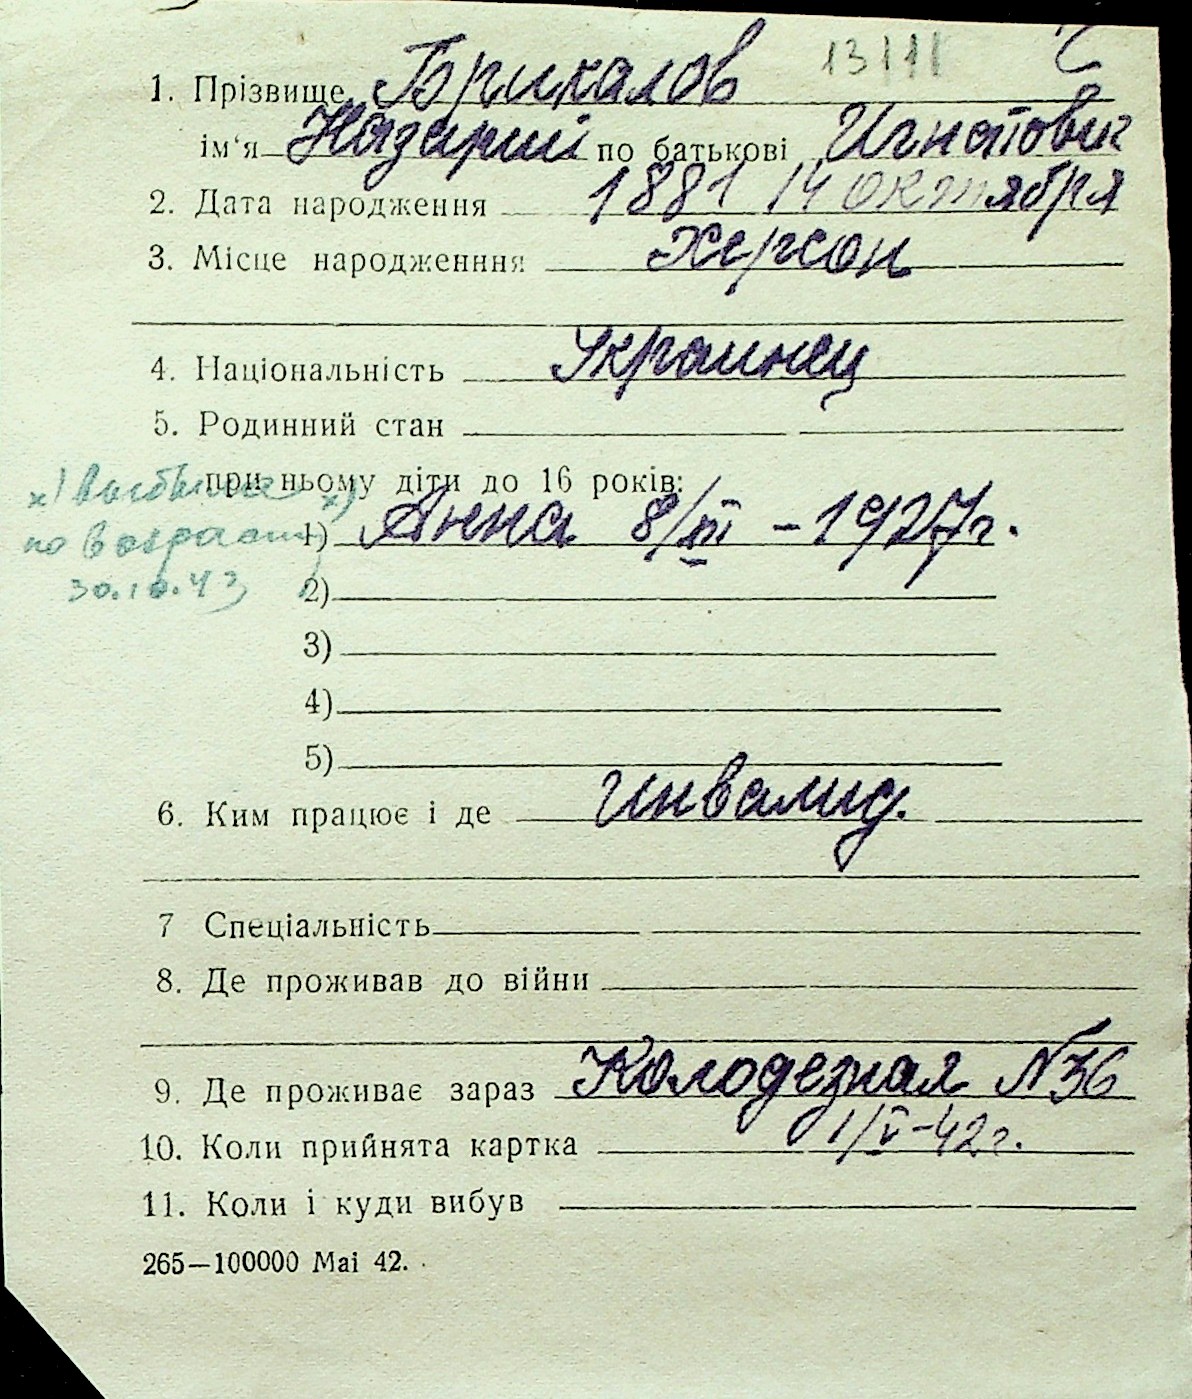 13111
1. Прізвище Брикалов
ім'я Назарий по батькові Игнатович
2. Дата народження 1881 14 октября
3. Місце народженння Херсон
4. Національність Украинец
5. Родинний стан
при ньому діти до 16 років:
х) Выбыла х)
по возрасту
30.10.43
1) Анна 8/III – 1927г.
2)
3)
4)
5)
6. Ким працює і де Инвалид.
7 Спеціальність
8. Де проживав до війни
9. Де проживає зараз Колодезная №36
10. Коли прийнята картка 1/V–42г.
11. Коли і куди вибув
265—100000 Маі 42.